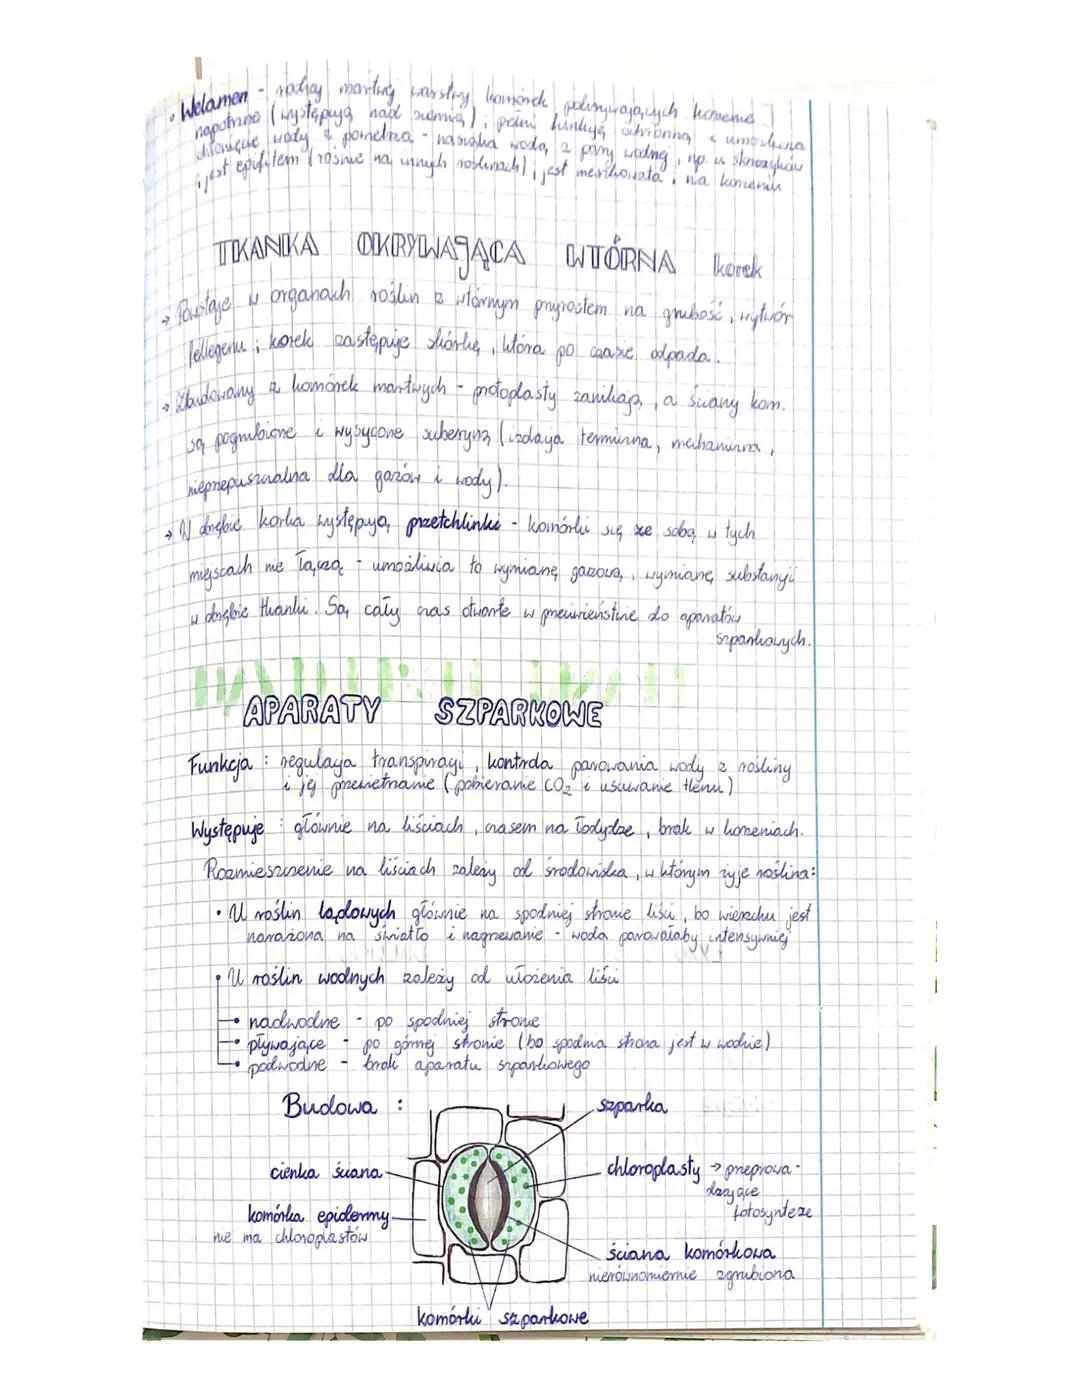 • Welamen - rodzaj martwej warstwy komórek pokrywających korzenie
napotrzne (występują nad ziemią); pełni funkcję ochronną i umożliwia
chłonięcie wody z powietrza - nasiąka wodą, z pary wodnej, np. u storczyków
jest epifitem (rośnie na innych roślinach); jest na korzeniu
TKANKA OKRYWAJĄCA WTÓRNA korek
→ Powstaje w organach roślin z wtórnym przyrostem na grubość, wytwór
fellogenu; korek zastępuje skórkę, która po czasie odpada.
→ Zbudowany z komórek martwych - protoplasty zanikają, a ściany kom.
są pogrubione i wysycone suberyną (izolacja termiczna, mechaniczna,
nieprzepuszczalna dla gazów i wody).
→ W obrębie korka występują przetchlinki - komórki się ze sobą w tych
miejscach nie łączą - umożliwia to wymianę gazową, wymianę substancji
w obrębie tkanki. Są cały czas otwarte w przeciwieństwie do aparatów
szparkowych.
APARATY SZPARKOWE
Funkcja : regulacja transpiracji, kontrola parowania wody z rośliny
i jej przewietrzanie (pobieranie CO₂ i usuwanie tlenu)
Występuje : głównie na liściach, czasem na łodydze, brak w korzeniach.
Rozmieszczenie na liściach zależy od środowiska, w którym żyje roślina:
• U roślin lądowych głównie na spodniej stronie liści, bo wierzchu jest
narażona na światło i nagrzewanie - woda parowałaby intensywniej
• U roślin wodnych zależy od ułożenia liści
• nadwodne - po spodniej stronie
• pływające - po górnej stronie (bo spodnia strona jest w wodzie)
• podwodne - brak aparatu szparkowego
Budowa :
szparka
cienka ściana
chloroplasty → przeprowa-
dzające
fotosyntezę
komórka epidermy
nie ma chloroplastów
ściana komórkowa
nierównomiernie zgrubiona
komórki szparkowe